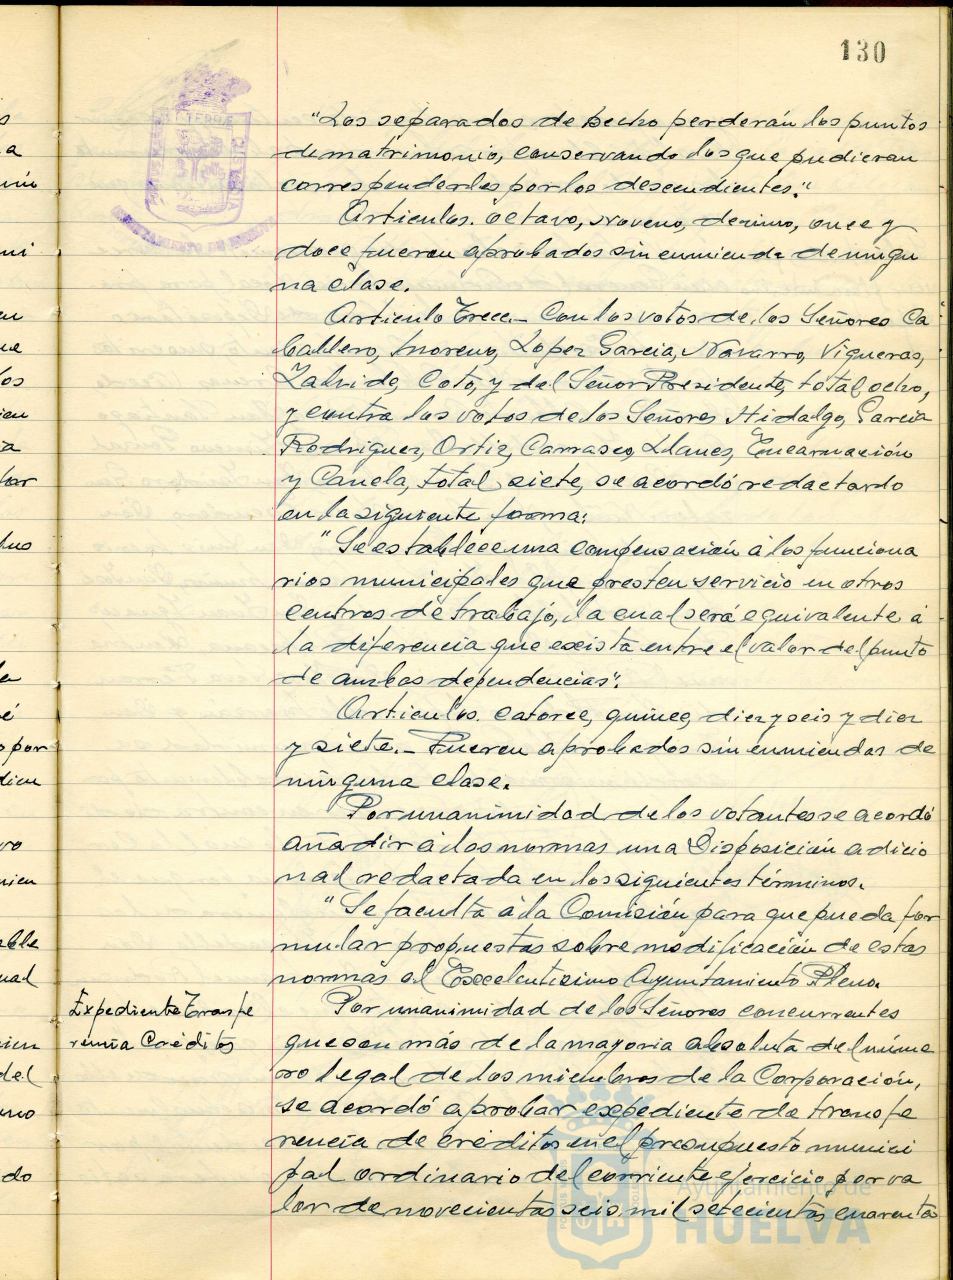 130
"Los separados de hecho perderán los puntos
de matrimonio, conservando los que pudieran
corresponderles por los descendientes."
Articulos. octavo, noveno, decimo, once y
doce fueron aprobados sin enmienda de ningu
na clase.
Articulo Trece.- Con los votos de los Señores Ca
ballero, Moreno, Lopez Garcia, Navarro, Vigueras,
Zalvide, Coto, y del Señor Presidente, total ocho,
y contra los votos de los Señores Hidalgo, Garcia
Rodriguez, Ortiz, Carrasco, Llanes, Encarnación
y Canela, total siete, se acordó redactarlo
en la siguiente forma:
"Se establece una compensación á los funciona
rios municipales que presten servicio en otros
centros de trabajo, la cual será equivalente á
la diferencia que exista entre el valor del punto
de ambas dependencias".
Articulos. catorce, quince, diez y seis y diez
y siete.- Fueron aprobados sin enmiendas de
ninguna clase.
Por unanimidad de los votantes se acordó
añadir á las normas una Disposición adicio
nal redactada en los siguientes términos.
"Se faculta á la Comisión para que pueda for
mular propuestas sobre modificación de estas
normas al Excelentisimo Ayuntamiento Pleno.
Expediente Transfe
rencia Créditos
Por unanimidad de los Señores concurrentes
que son más de la mayoria absoluta del núme
ro legal de los miembros de la Corporación,
se acordó aprobar expediente de transfe
rencia de créditos en el presupuesto munici
pal ordinario del corriente ejercicio por va
lor de novecientas seis mil setecientas cuarenta
Ayuntamiento de
HUELVA